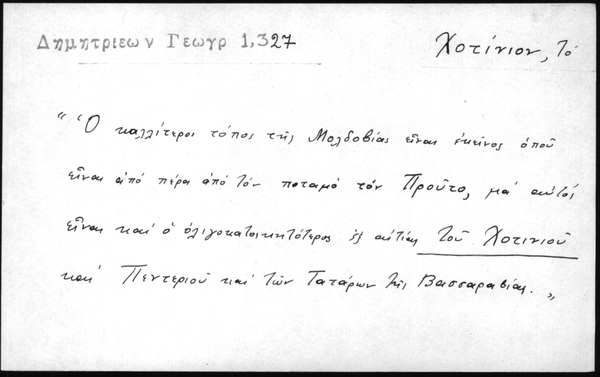 Δημητριεων Γεωγρ 1,327
Χοτίνιον, τό
“ Ὁ καλλίτερος τόπος τῆς Μολδοβίας εἶναι ἐκεῖνος ὁποῦ
εἶναι ἀπό πέρα ἀπό τόν ποταμό τόν Προῦτο, μά αὐτός
εἶναι καί ὁ ὀλιγοκατοικητότερος ἐξ αἰτίας τοῦ Χοτινιοῦ
καί Πεντεριοῦ καί τῶν Τατάρων τῆς Βασσαραβίας. „